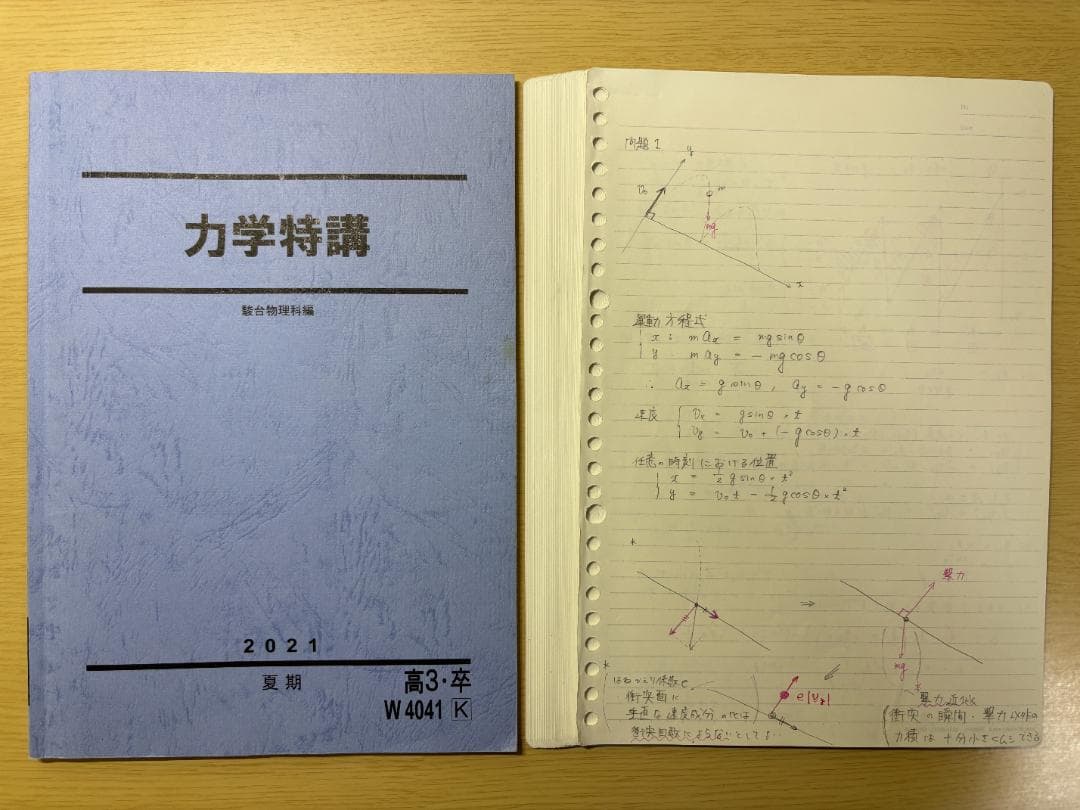 力学特講
駿台物理科編
2021
夏期
高3・卒
W4041 K
問題1
y
v₀
m
mg
x
運動方程式
x: m aₓ = mg sinθ
y: m a_y = - mg cosθ
∴ aₓ = g sinθ, a_y = -g cosθ
速度 vₓ = g sinθ × t
v_y = v₀ + (-g cosθ) × t
任意の時刻における位置
x = 1/2 g sinθ × t²
y = v₀t - 1/2 g cosθ × t²
*
⇒
撃力
mg
*
はねかえり係数e
衝突面に
垂直な速度成分の比は
衝突回数によらないとして
撃力近似
衝突の瞬間、撃力以外の
力積は十分小さくムシできる